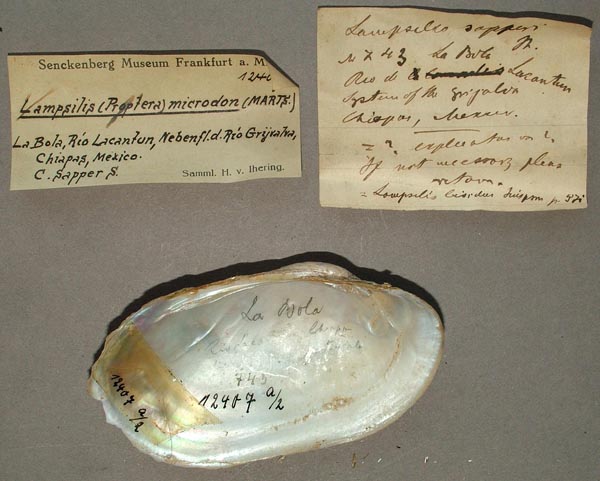 Senckenberg Museum Frankfurt a. M.
Lampsilis (Proptera) microdon (MARTS.)
La Bola, Río Lacantun, Nebenfl. d. Río Grijalva,
Chiapas, Mexico.
C. Sapper S.
Samml. H. v. Ihering.
Lampsilis sapperi
743 La Bola
Rio de Lacantun
System of the Grijalva
Chiapas, Mexico.
= ? explicatus m ?
If not necessary pleas
return.
= Lampsilis
La Bola
743
12407 a/2
12407 a/2